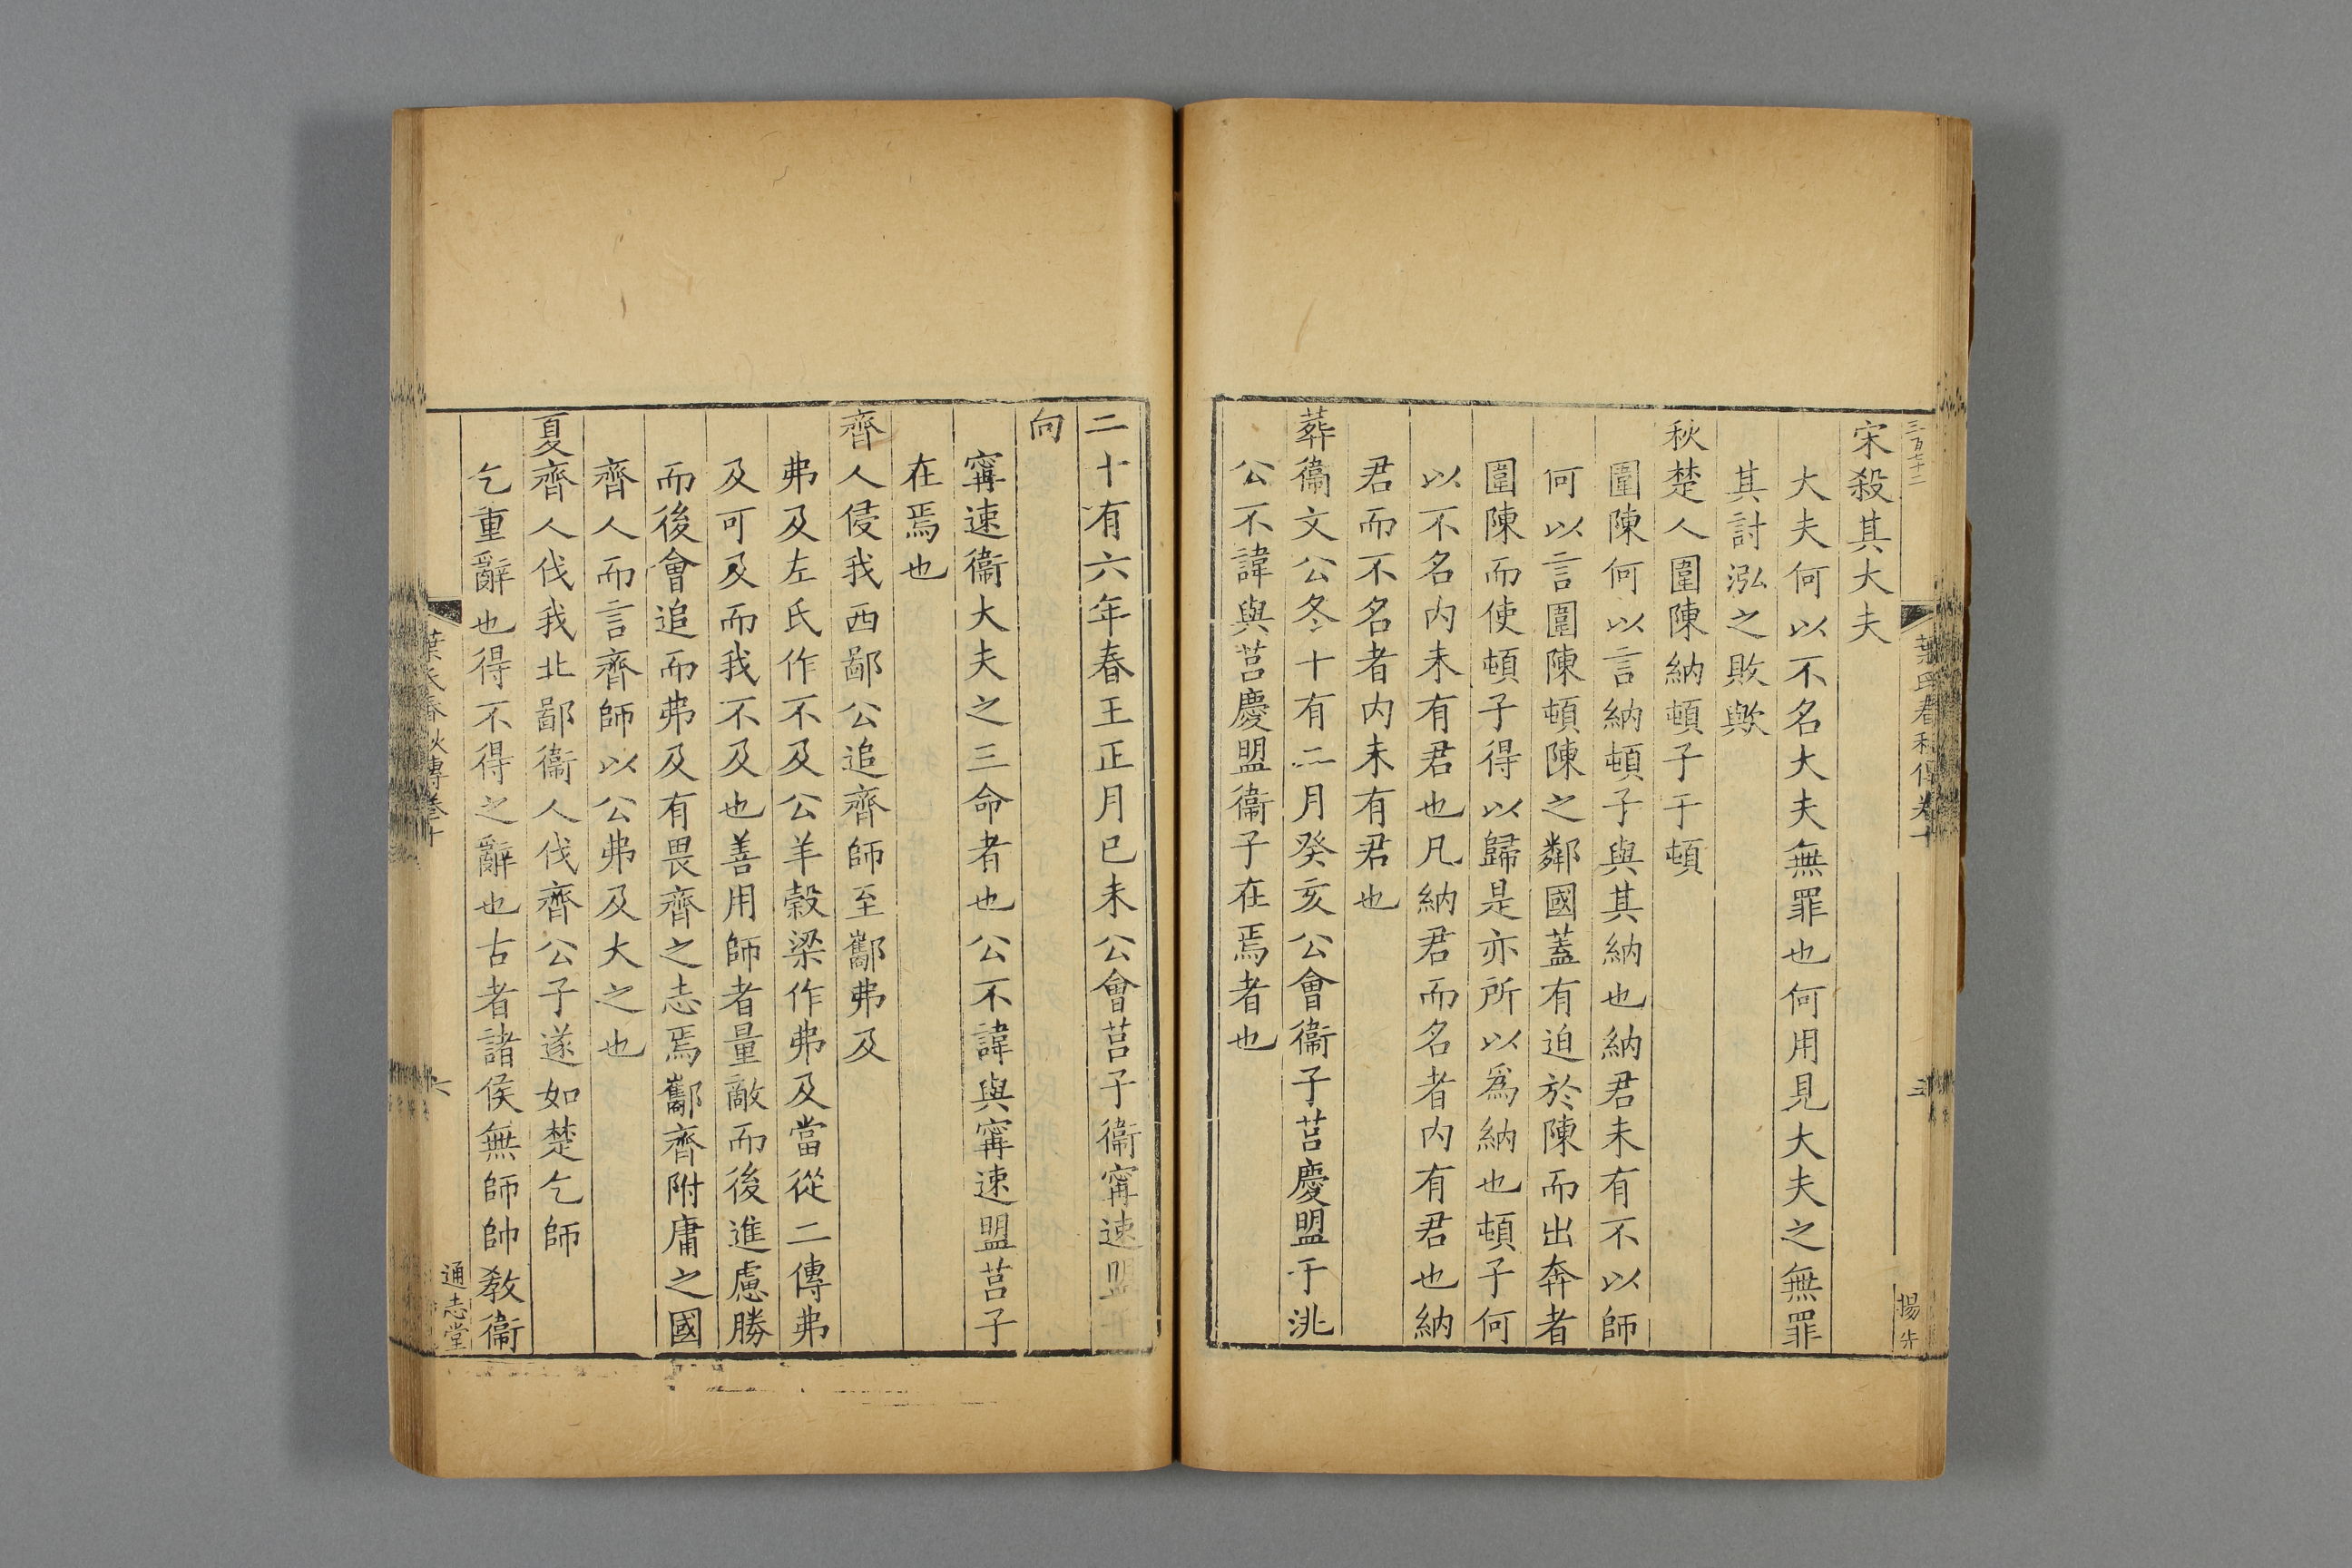 三百七十二
葉氏春秋傳卷十
五
楊先
宋殺其大夫
大夫何以不名大夫無罪也何用見大夫之無罪
其討泓之敗歟
秋楚人圍陳納頓子于頓
圍陳何以言納頓子與其納也納君未有不以師
何以言圍陳頓陳之鄰國蓋有迫於陳而出奔者
圍陳而使頓子得以歸是亦所以爲納也頓子何
以不名内未有君也凡納君而名者内有君也納
君而不名者内未有君也
葬衞文公冬十有二月癸亥公會衞子莒慶盟于洮
公不諱與莒慶盟衞子在焉者也
二十有六年春王正月已未公會莒子衞甯速盟于
向
甯速衞大夫之三命者也公不諱與甯速盟莒子
在焉也
齊人侵我西鄙公追齊師至酅弗及
弗及左氏作不及公羊榖梁作弗及當從二傳弗
及可及而我不及也善用師者量敵而後進慮勝
而後會追而弗及有畏齊之志焉酅齊附庸之國
齊人而言齊師以公弗及大之也
夏齊人伐我北鄙衞人伐齊公子遂如楚乞師
乞重辭也得不得之辭也古者諸侯無師帥敎衞
葉氏春秋傳卷十
六
通志堂